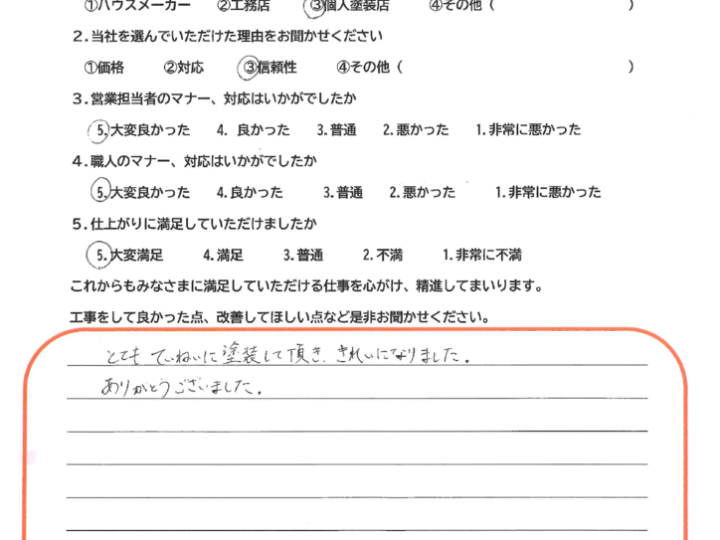 ①ハウスメーカー ②工務店 ③個人塗装店 ④その他（ ）
２.当社を選んでいただけた理由をお聞かせください
①価格 ②対応 ③信頼性 ④その他（ ）
３.営業担当者のマナー、対応はいかがでしたか
5.大変良かった 4. 良かった 3.普通 2.悪かった 1.非常に悪かった
４.職人のマナー、対応はいかがでしたか
5.大変良かった 4.良かった 3.普通 2.悪かった 1.非常に悪かった
５.仕上がりに満足していただけましたか
5.大変満足 4.満足 3.普通 2.不満 1.非常に不満
これからもみなさまに満足していただける仕事を心がけ、精進してまいります。
工事をして良かった点、改善してほしい点など是非お聞かせください。
とても ていねいに塗装して頂き、きれいになりました。
ありがとうございました。